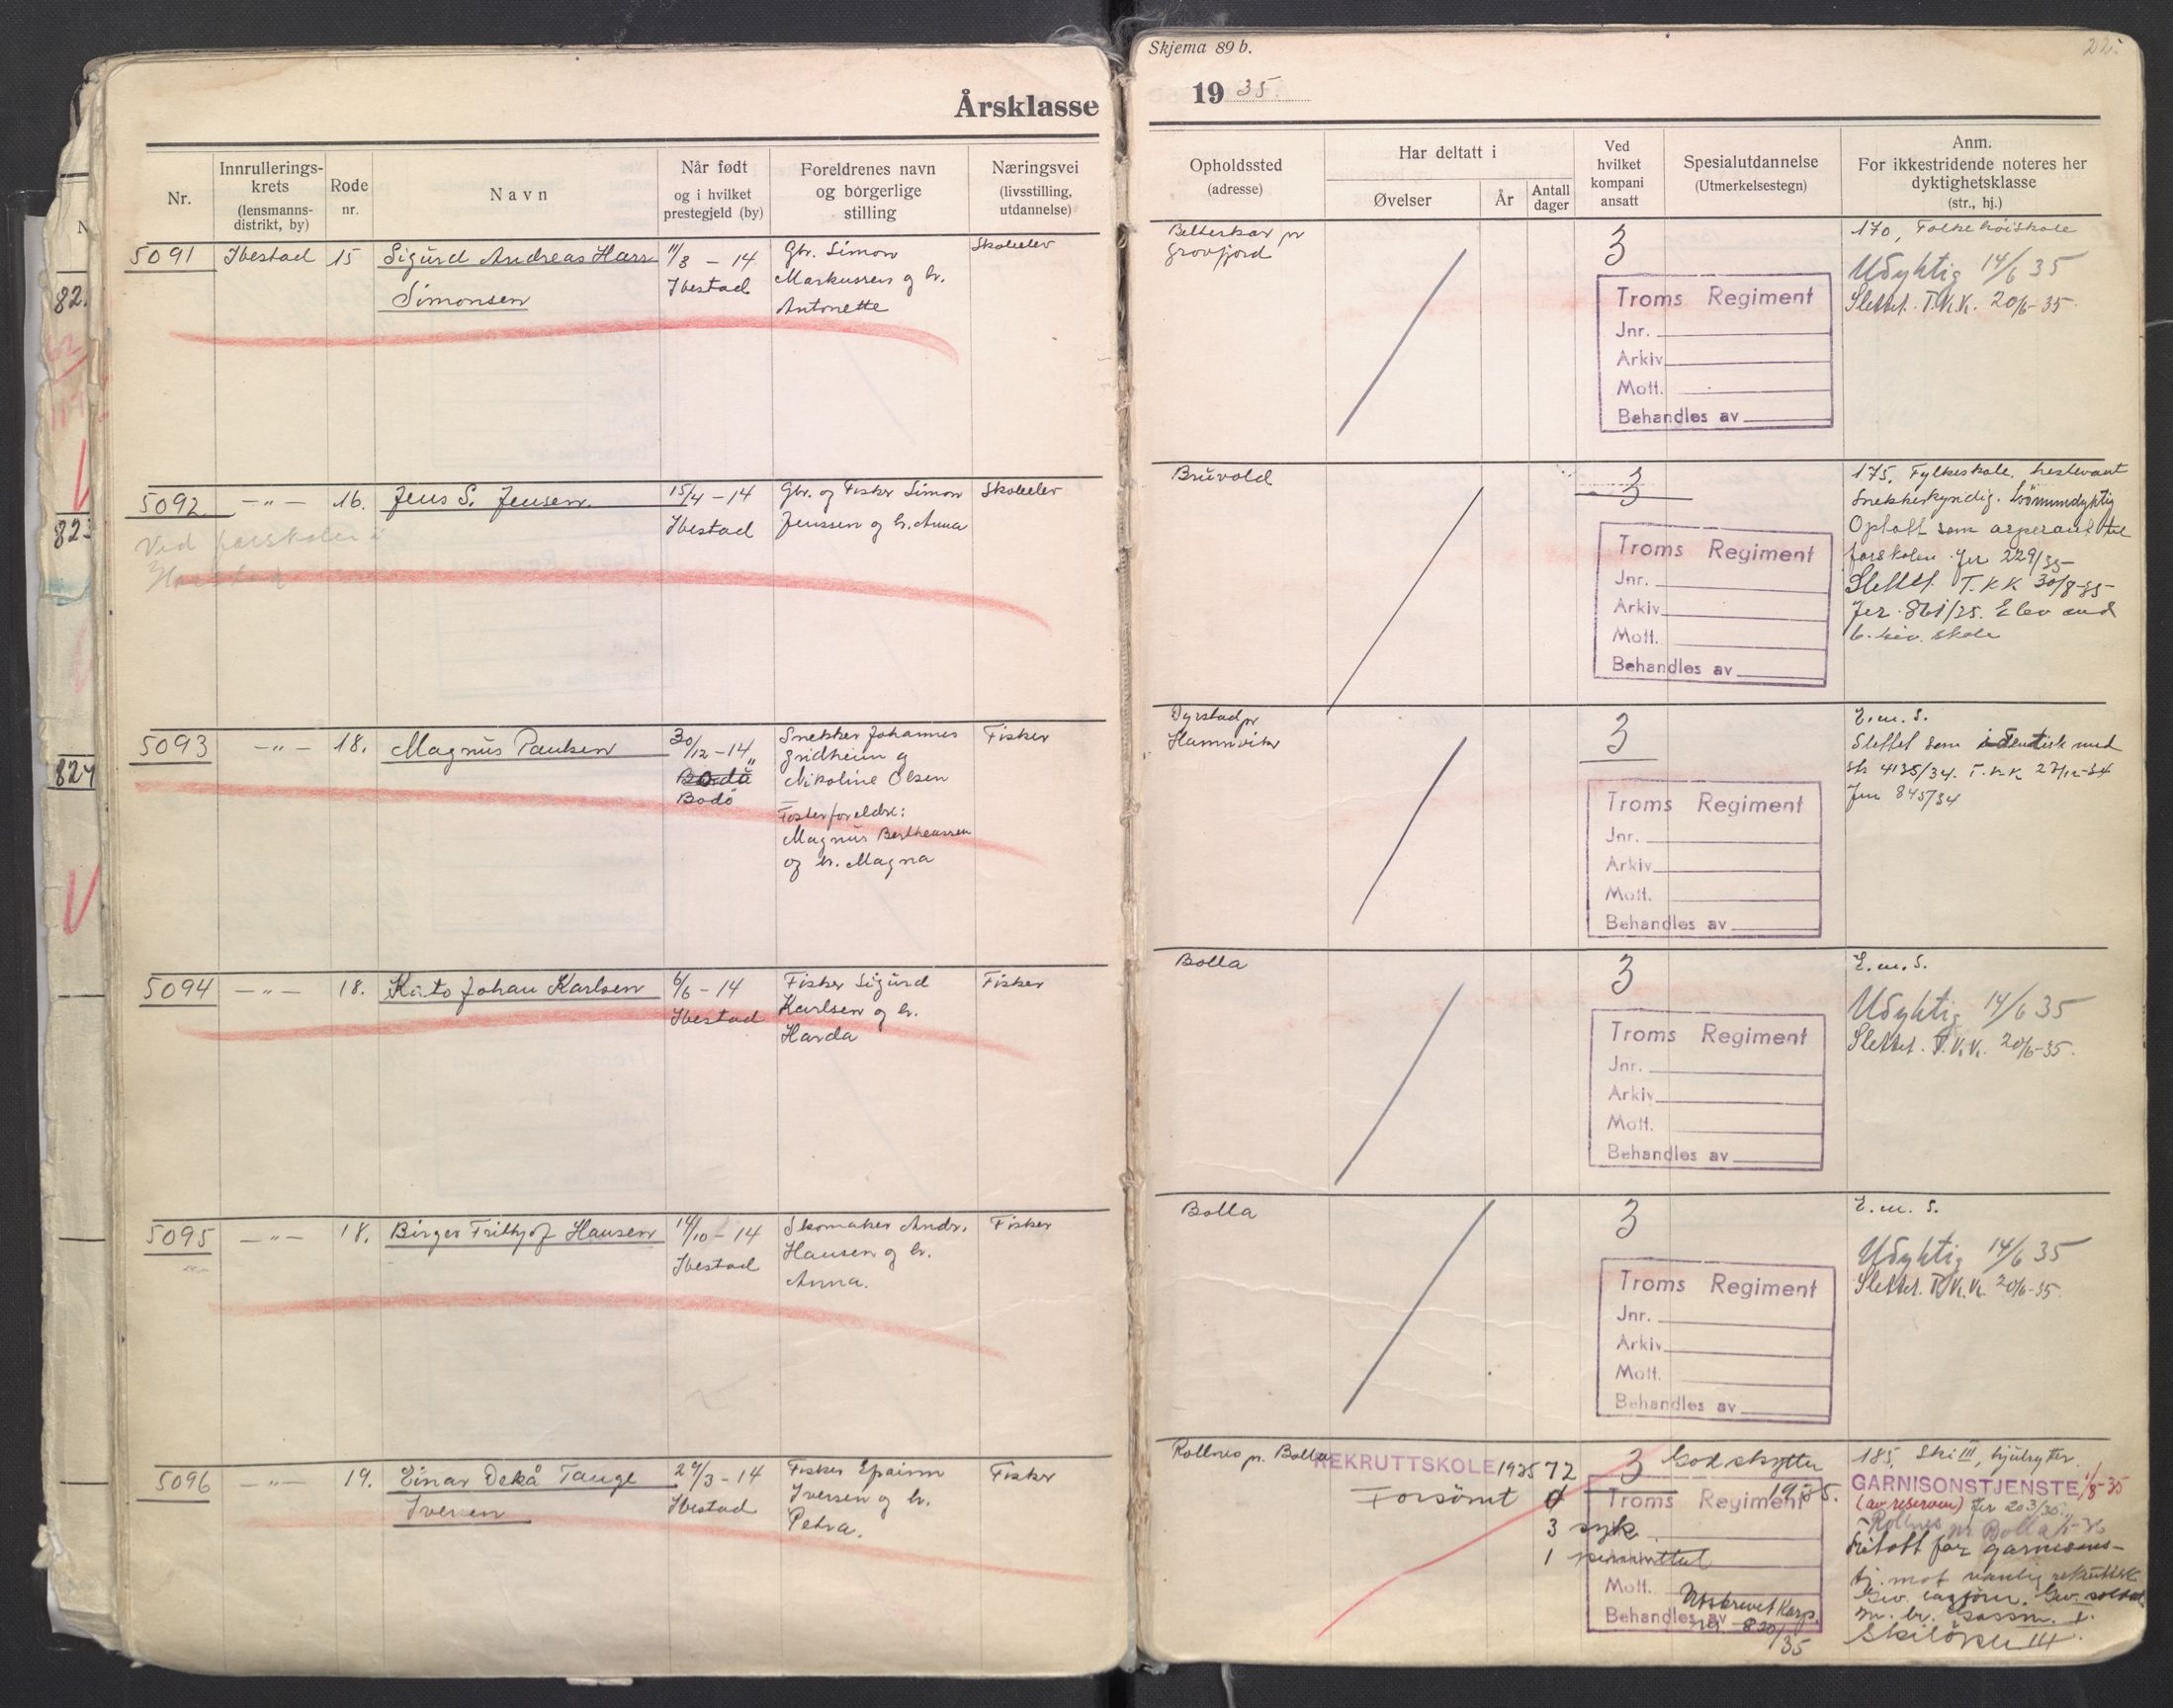 Skjema 89 b.
22.
Årsklasse
19 35.
Nr.
Innrullerings-
krets
(lensmanns-
distrikt, by)
Rode
nr.
Navn
Når født
og i hvilket
prestegjeld (by)
Foreldrenes navn
og borgerlige
stilling
Næringsvei
(livsstilling,
utdannelse)
Opholdssted
(adresse)
Har deltatt i
Øvelser
År
Antall
dager
Ved
hvilket
kompani
ansatt
Spesialutdannelse
(Utmerkelsestegn)
Anm.
For ikkestridende noteres her
dyktighetsklasse
(str., hj.)
5091 Ibestad 15 Sigurd Andreas
Simonsen
11/3 - 14
Ibestad
Gbr. Simon
Markussen og h.
Antonette
Skoleelev
Grovfjord
3
Troms Regiment
Jnr.
Arkiv
Mott.
Behandles av
170, Folkehöiskole
Udyktig 14/6 35
Slettet. T.K.K. 20/6-35.
5092 -"- 16. Jens S. Jensen.
Ved forskolen i
Harstad
15/4 - 14
Ibestad
Gbr. og Fisker Simon
Jenssen og h. Anna
Skoleelev
Bruvold
3
Troms Regiment
Jnr.
Arkiv
Mott.
Behandles av
175, Fylkeskole, hestevant
Snekkerkyndig.
Optatt som aspirant
forskolen. Jnr 229/35
Slettet T.K.K 30/8-35
Jnr. 861/35. Elev ved
skole
5093 -"- 18. Magnus Paulsen
30/12 - 14
Bodö
Snekker Johannes
Gridheim og
Nikoline Olsen
Fosterforeldre:
Magnus Bertheussen
og h. Magna
Fisker
Dyrstad pr
Hamnvik
3
Troms Regiment
Jnr.
Arkiv
Mott.
Behandles av
E.m.S.
Slettet som identisk med
4135/34. T.K.K. 27/12-34
Jnr 845/34
5094 -"- 18. Kåto Johan Karlsen
6/6 - 14
Ibestad
Fisker Sigurd
Karlsen og h.
Harda
Fisker
Bolla
3
Troms Regiment
Jnr.
Arkiv
Mott.
Behandles av
E.m.S.
Udyktig 14/6 35
Slettet. T.K.K. 20/6-35.
5095 -"- 18. Birger Frithjof Hansen
14/10 - 14
Ibestad
Skomaker Andr.
Hansen og h.
Anna.
Fisker
Bolla
3
Troms Regiment
Jnr.
Arkiv
Mott.
Behandles av
E.m.S.
Udyktig 14/6 35
Slettet. T.K.K. 20/6-35.
5096 -"- 19. Einar Dekå Tange
Iversen
29/3 - 14
Ibestad
Fisker Epaim
Iversen og h.
Petra.
Fisker
Rollnes p. Bolla
REKRUTTSKOLE 1935 72
Forsömt 4
3 syk
1 permittert
3 God skytter
1935.
Troms Regiment
Mott.
Behandles av
Utskrevet Korp.
nr. 820/35
185, Ski III, hjulrytter.
GARNISONSTJENSTE 1/8-35
(av reserven) Jnr 203/35
Rollnes pr Bolla
Fritatt for garnisons-
tj. mot vanlig rekruttsk
Skilöper III.
82.
823
824